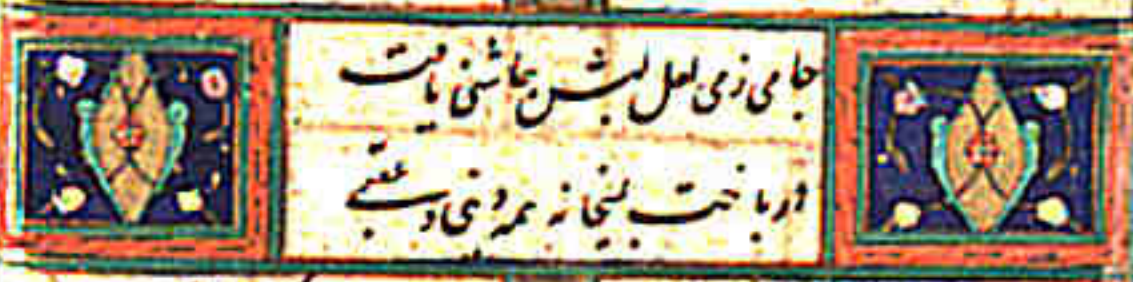 جامی ز می لعل لبش چاشنی یافت
در باخت بمیخانه همه دنیی و عقبی